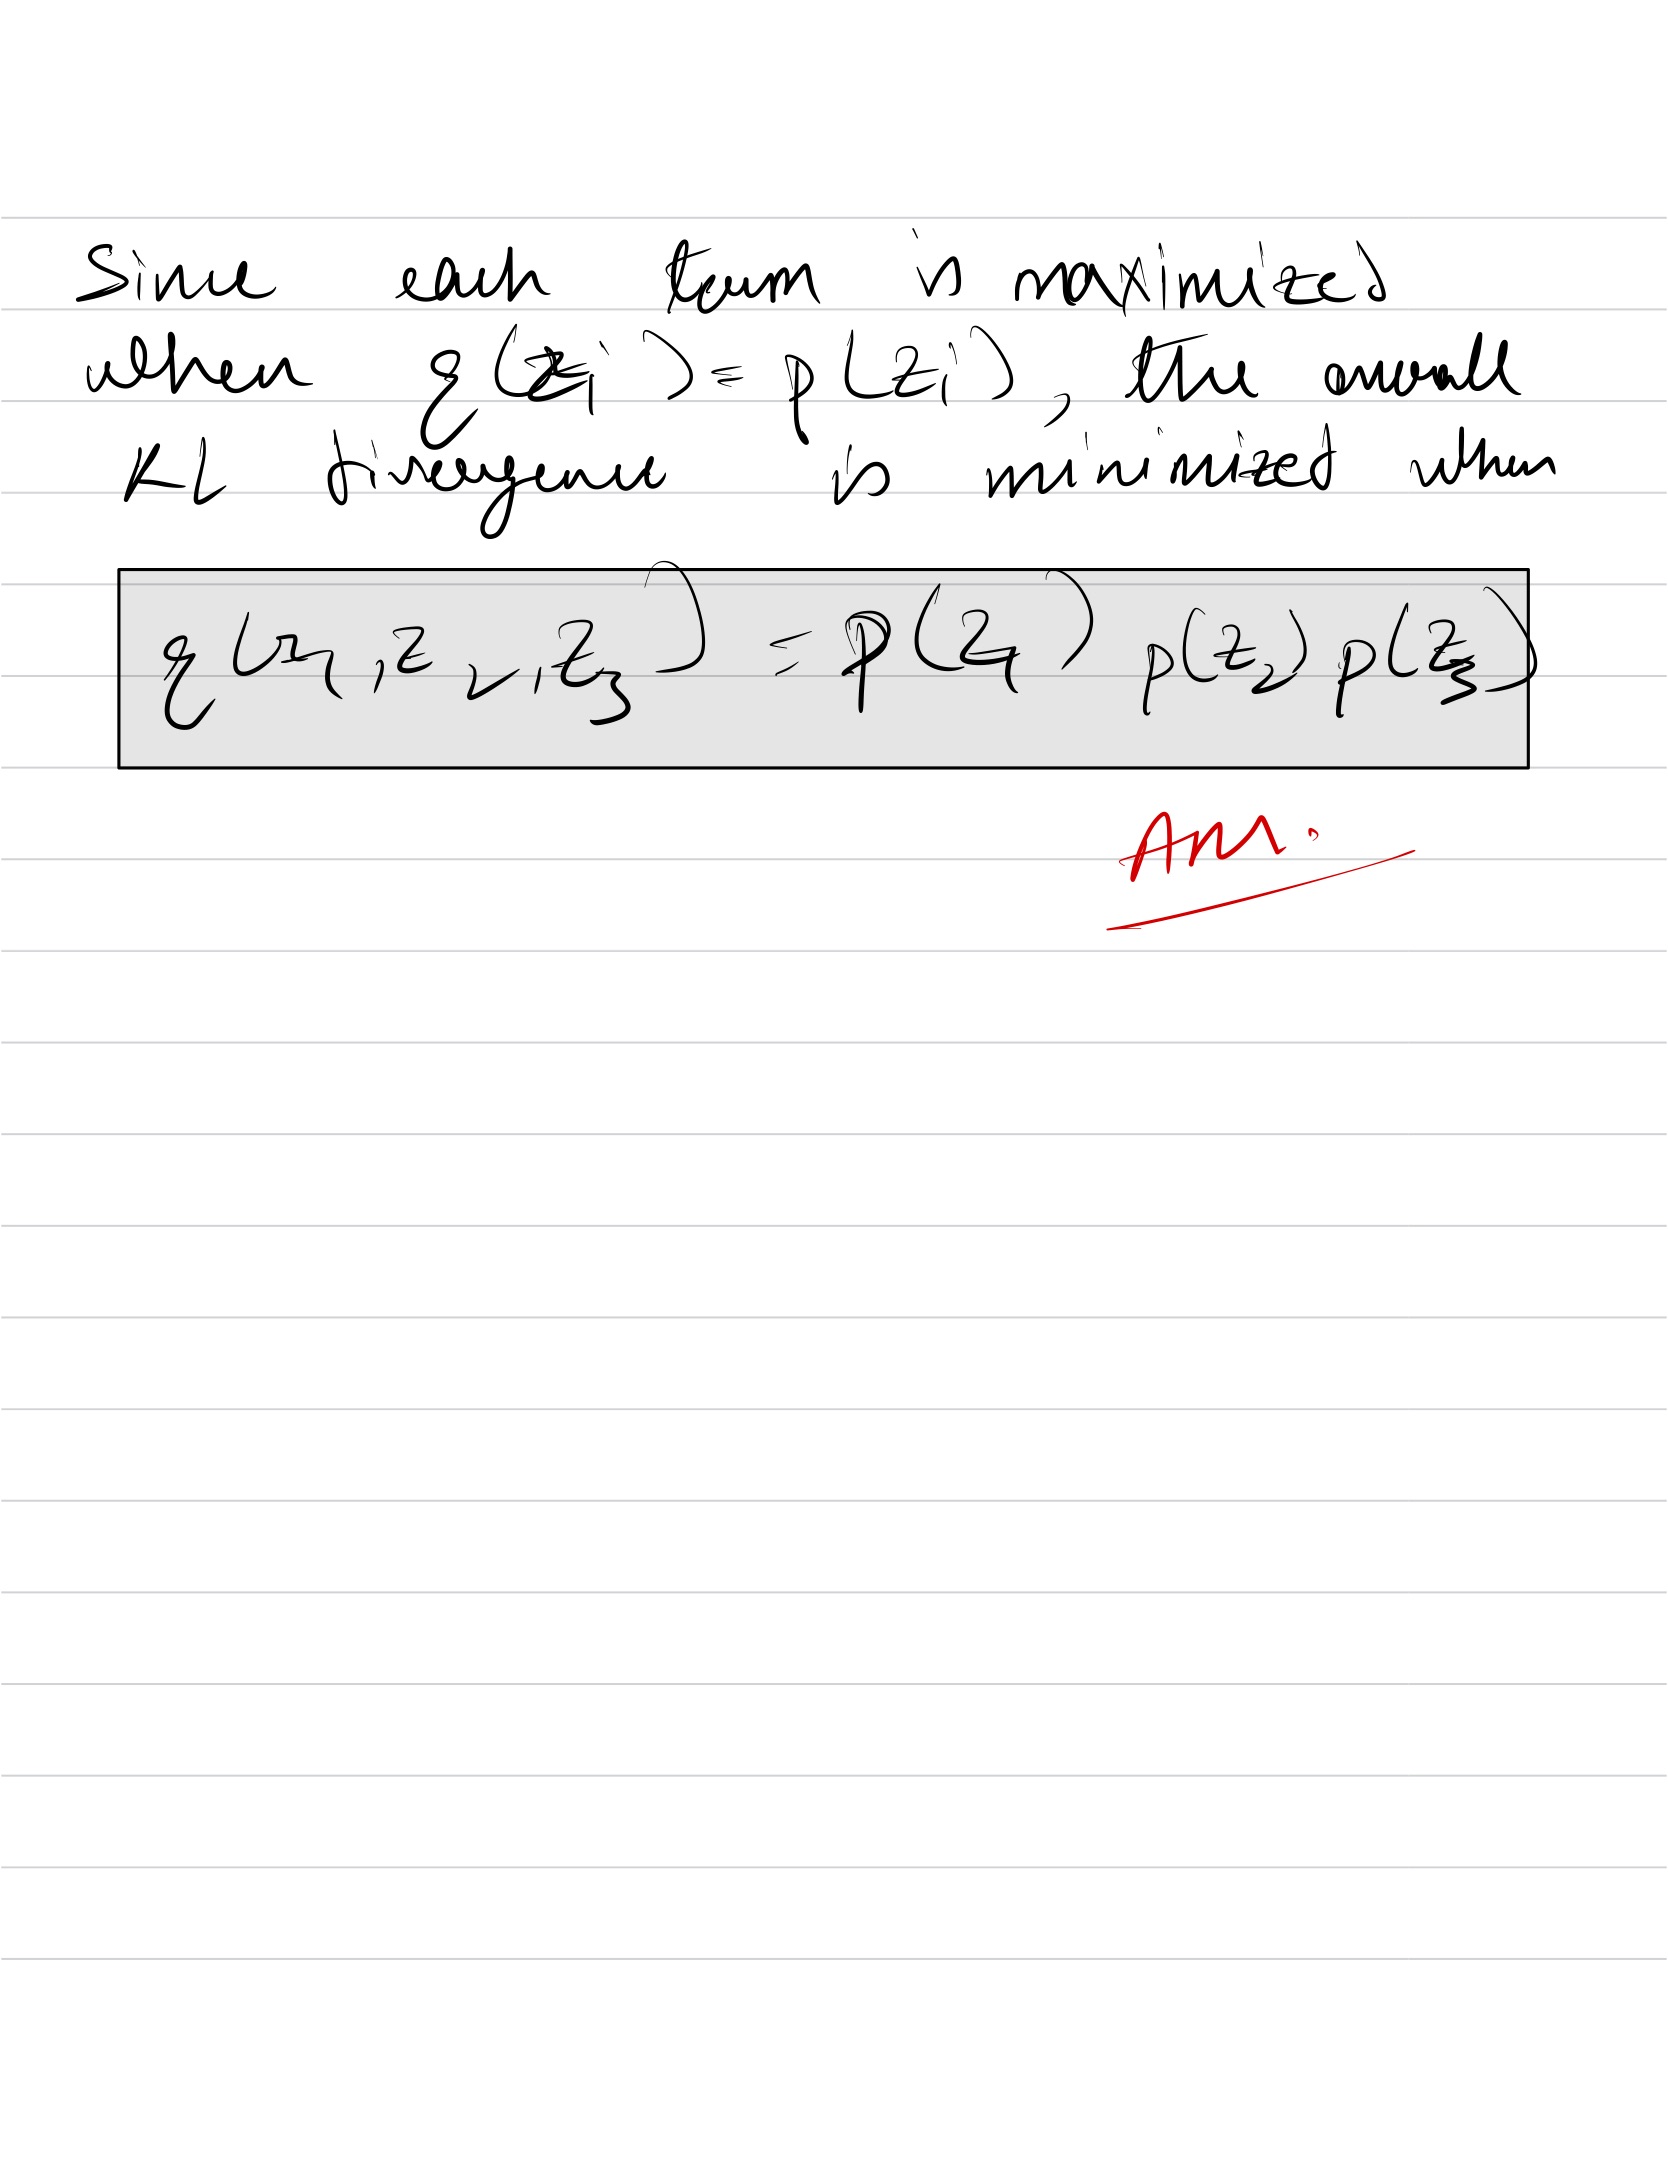 Since each term is maximized
when q(zᵢ) = p(zᵢ), the overall
KL divergence is minimized when
q(z₁, z₂, z₃) = p(z₁) p(z₂) p(z₃)
Ans.